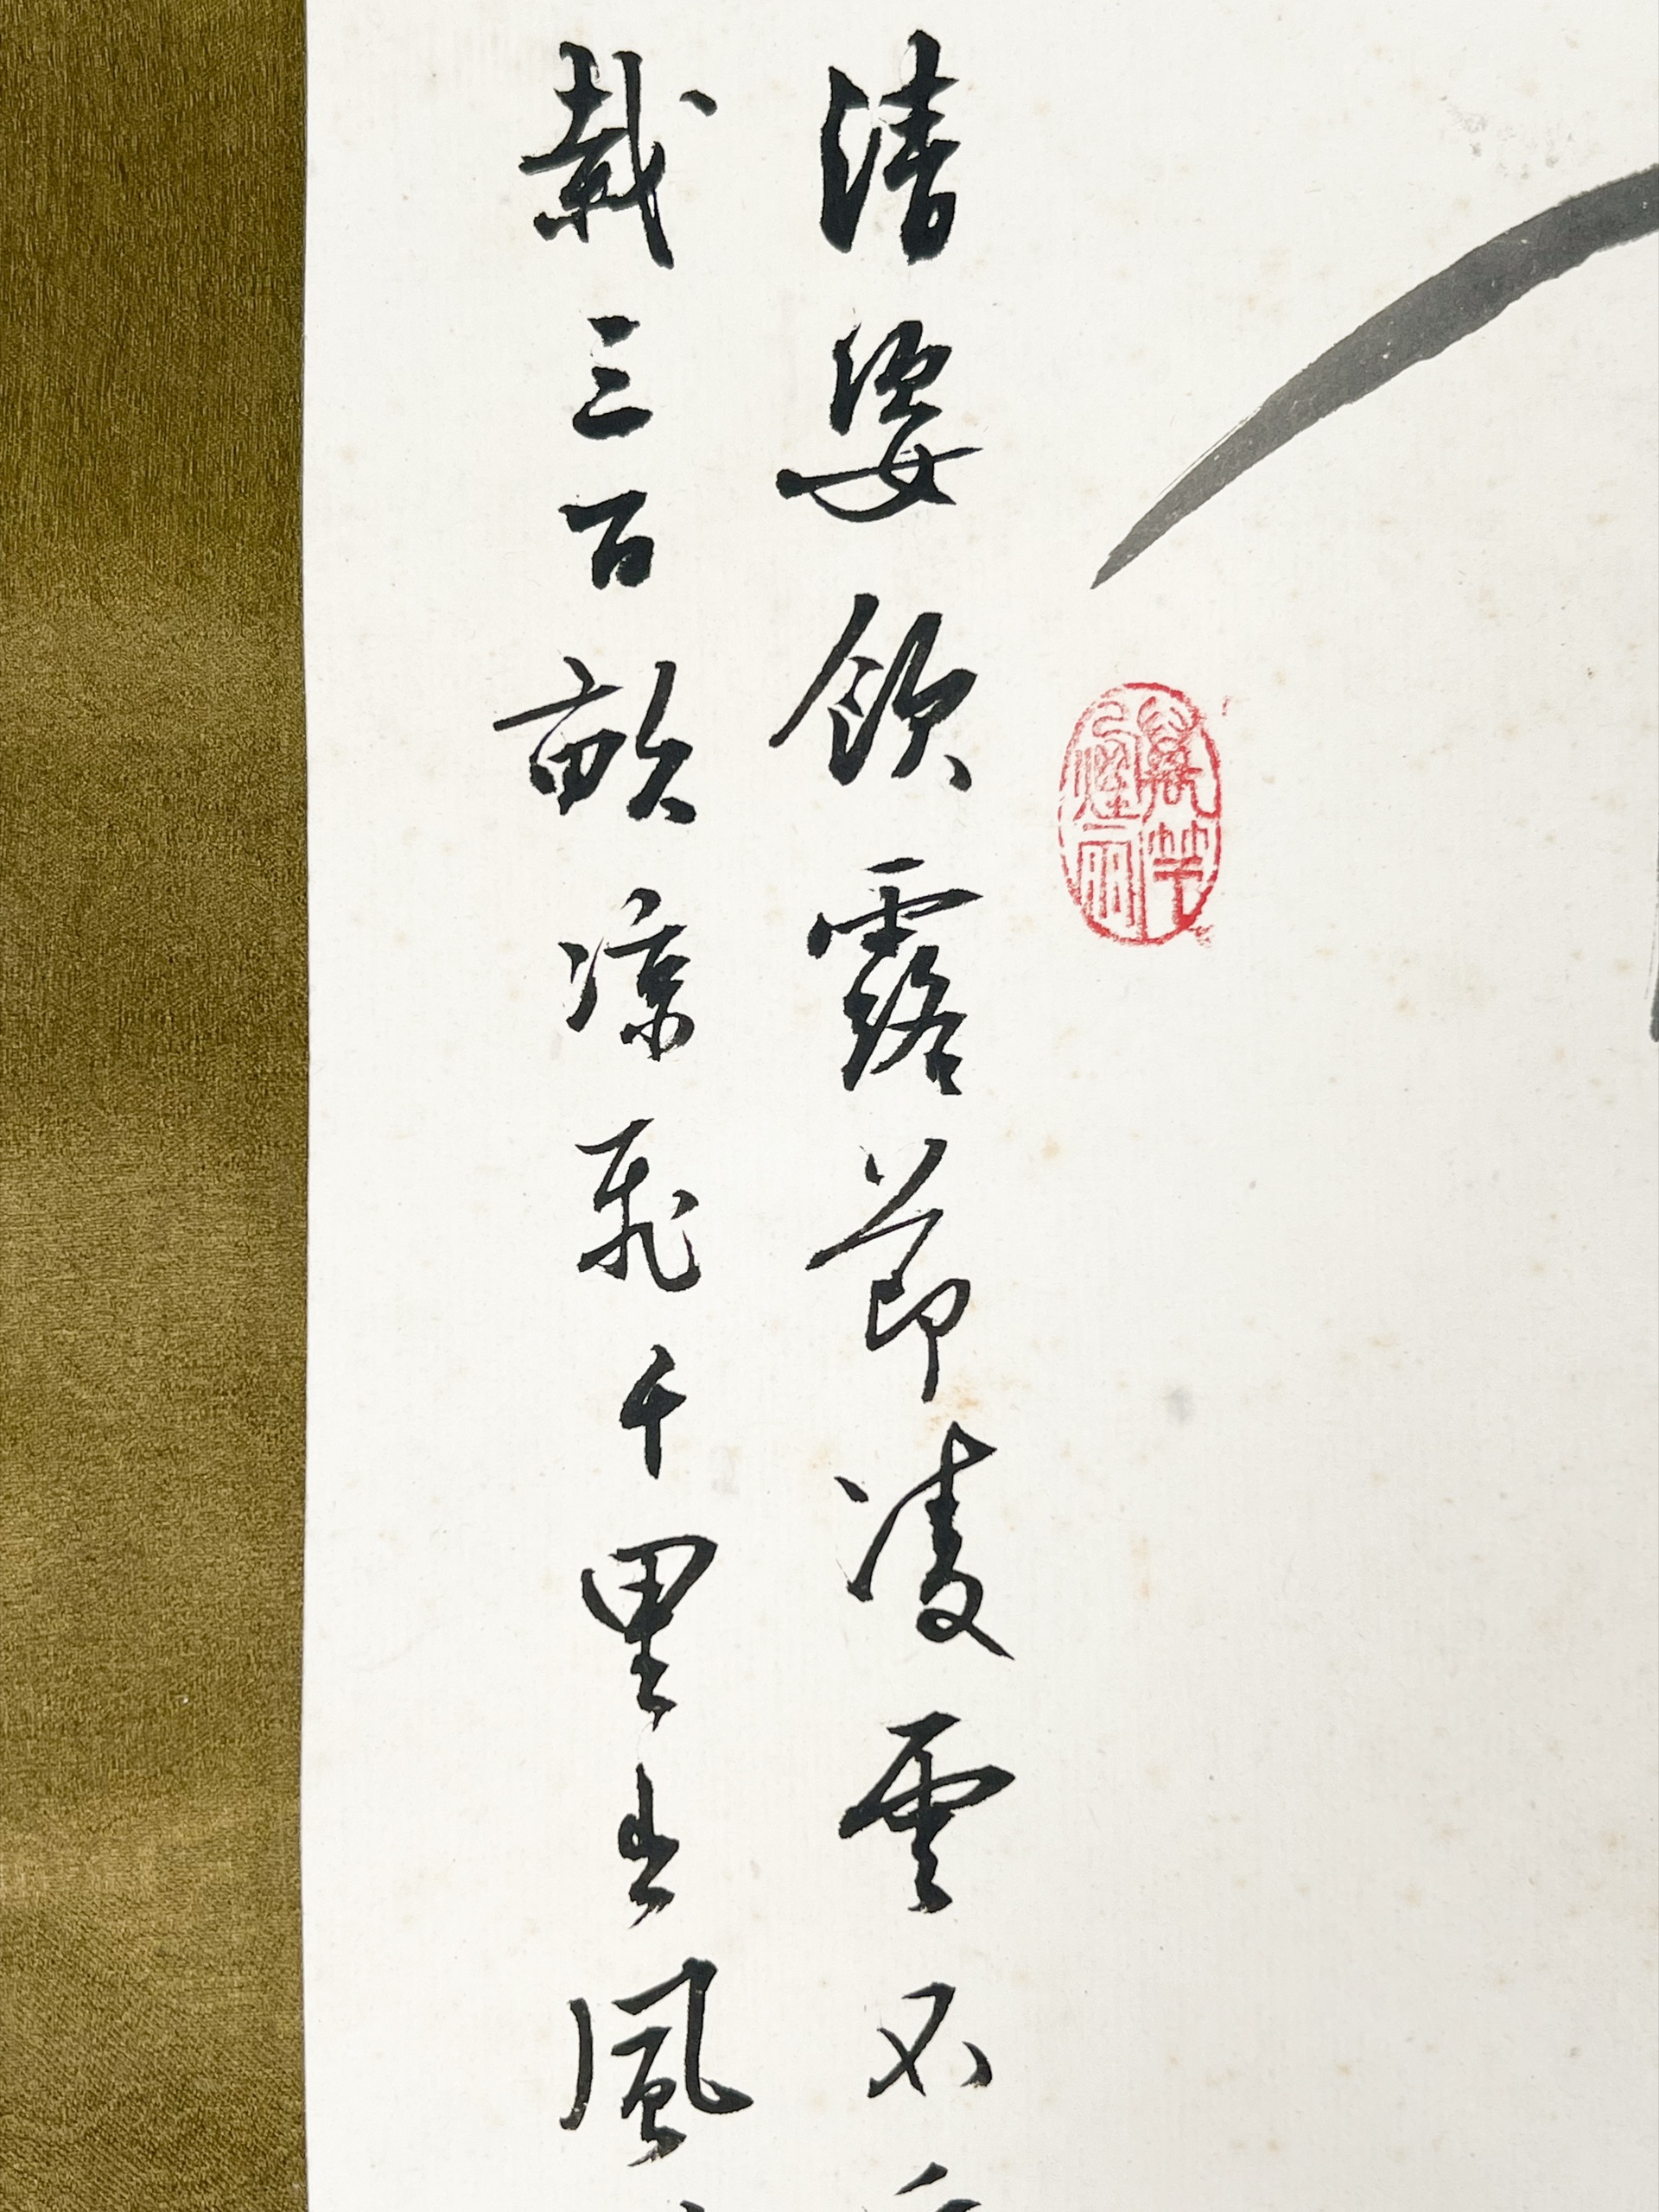 清姿飲露節凌雲不
栽三百畝涼飛千里士風